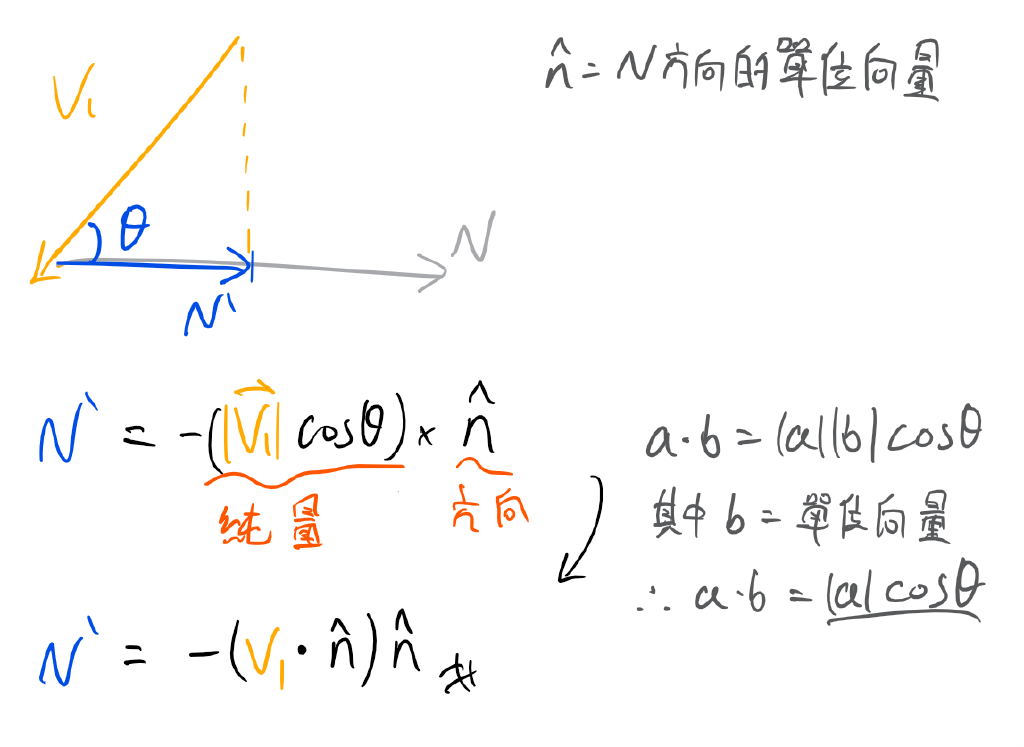 n̂ = N方向的單位向量
V₁
θ
N
N'
N' = -(|V₁⃗| cosθ) × n̂
純量 方向
a·b = |a||b| cosθ
其中 b = 單位向量
∴ a·b = |a| cosθ
N' = -(V₁ · n̂) n̂ #